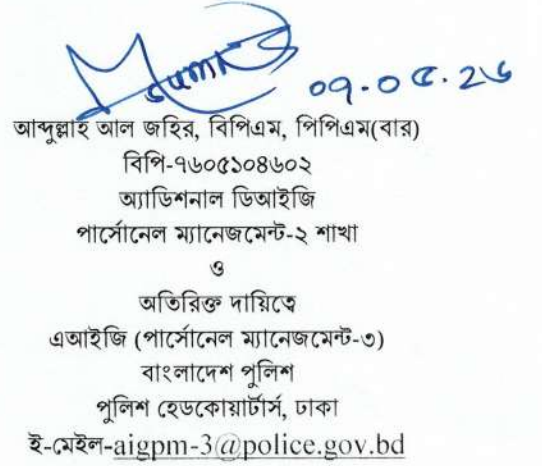 ০৭.০৫.২৬
আব্দুল্লাহ আল জহির, বিপিএম, পিপিএম(বার)
বিপি-৭৬০৫১০৪৬০২
অ্যাডিশনাল ডিআইজি
পার্সোনেল ম্যানেজমেন্ট-২ শাখা
ও
অতিরিক্ত দায়িত্বে
এআইজি (পার্সোনেল ম্যানেজমেন্ট-৩)
বাংলাদেশ পুলিশ
পুলিশ হেডকোয়ার্টার্স, ঢাকা
ই-মেইল-aigpm-3@police.gov.bd